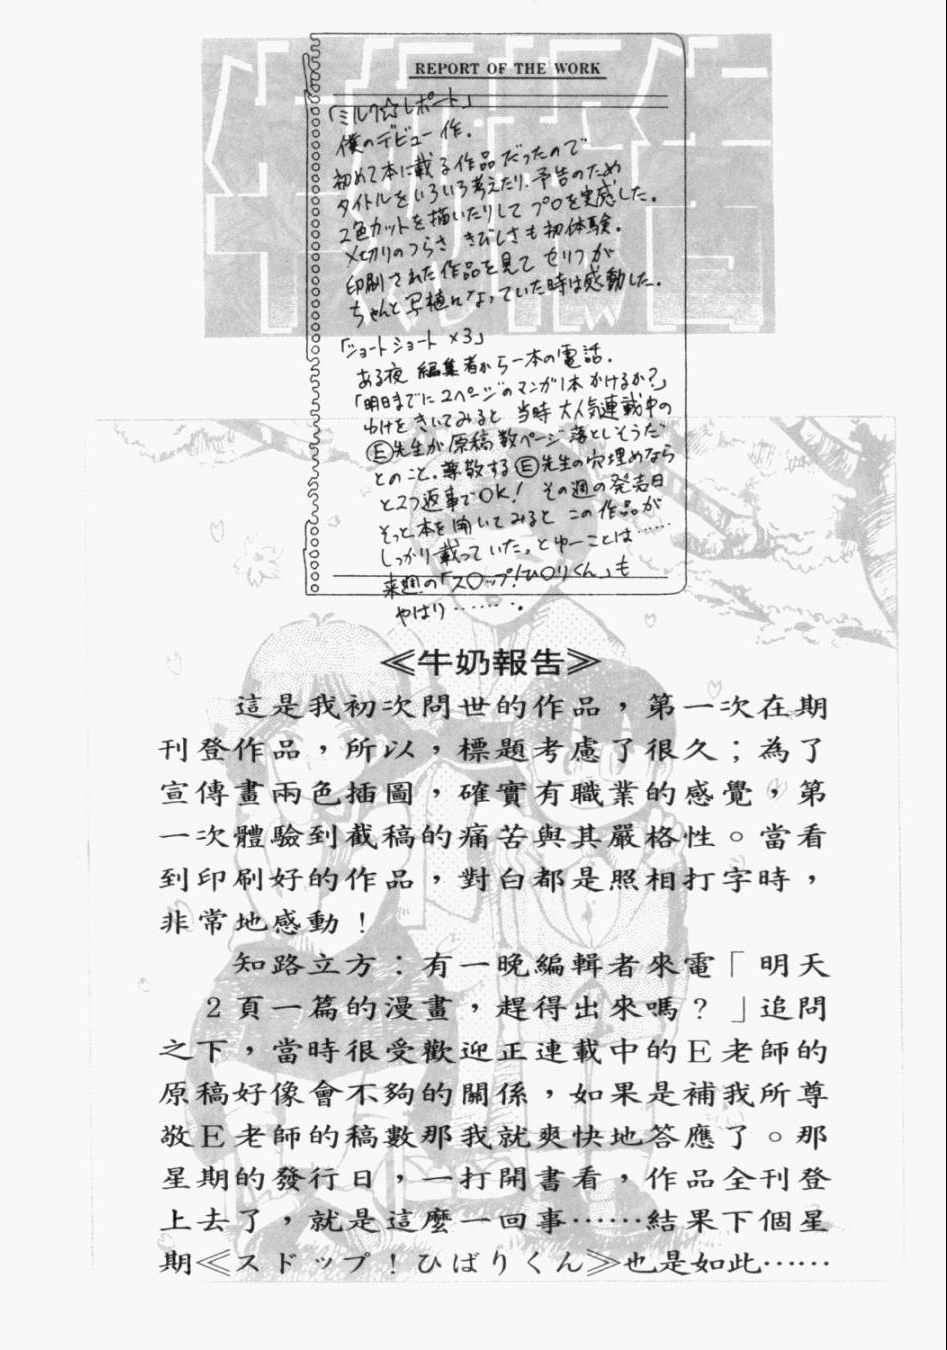 REPORT OF THE WORK
「ミルク☆レポート」
僕のデビュー作.
初めて本に載る作品だったので
タイトルをいろいろ考えたり、予告のため
2色カットを描いたりして プロを実感した。
〆切りのつらさ きびしさも初体験。
印刷された作品を見て セリフが
ちゃんと写植になっていた時は感動した。
「ショートショート×3」
ある夜 編集者から一本の電話.
「明日までに2ページのマンガ1本かけるか?」
わけをきいてみると 当時 大人気連載中の
Ⓔ先生が原稿数ページ落としそうだ
とのこと。尊敬するⒺ先生の穴埋めなら
と2つ返事でOK! その週の発売日
そっと本を開いてみると この作品が
しっかり載っていた。とゆーことは……
来週の「ス○ップ!ひ○りくん」も
やはり………。
≪牛奶報告≫
這是我初次問世的作品，第一次在期
刊登作品，所以，標題考慮了很久；為了
宣傳畫兩色插圖，確實有職業的感覺，第
一次體驗到截稿的痛苦與其嚴格性。當看
到印刷好的作品，對白都是照相打字時，
非常地感動！
知路立方：有一晚編輯者來電「明天
2頁一篇的漫畫，趕得出來嗎？」追問
之下，當時很受歡迎正連載中的E老師的
原稿好像會不夠的關係，如果是補我所尊
敬E老師的稿數那我就爽快地答應了。那
星期的發行日，一打開書看，作品全刊登
上去了，就是這麼一回事……結果下個星
期≪スドップ！ひばりくん≫也是如此……